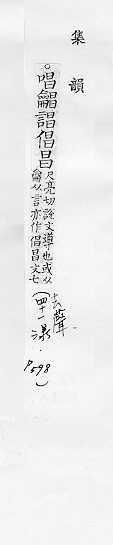 集韻
。唱龤誯倡昌尺亮切說文導也或从
龠从言亦作倡昌文七
去聲
(四十一漾.
P.598)